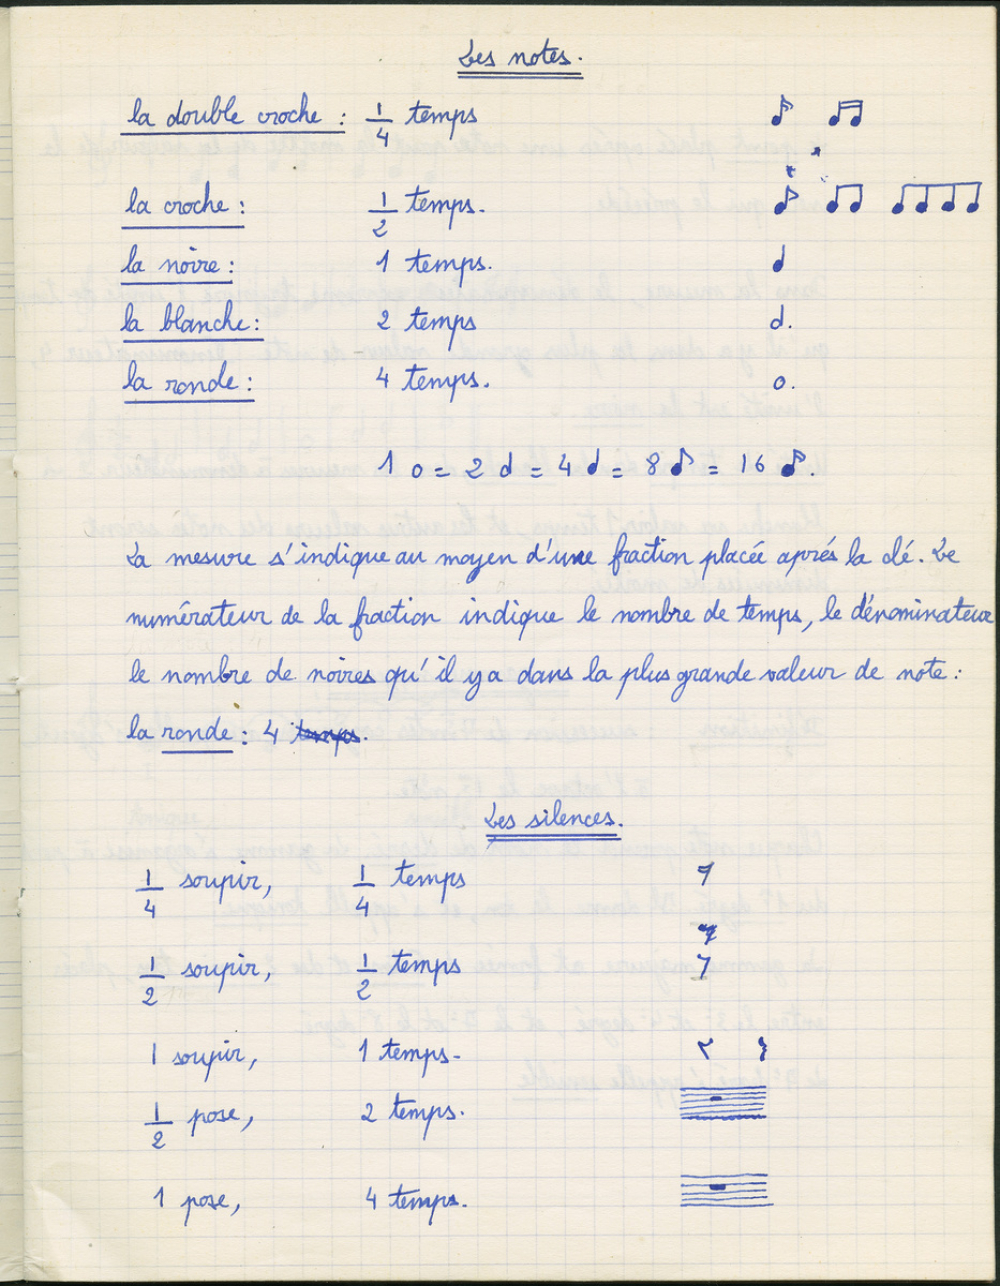 Les notes.
la double croche : 1/4 temps
la croche : 1/2 temps.
la noire : 1 temps.
la blanche : 2 temps
la ronde : 4 temps.
1 o = 2 d = 4 ♩ = 8 ♪ = 16
La mesure s'indique au moyen d'une fraction placée aprés la clé. Le
numérateur de la fraction indique le nombre de temps, le dénominateur
le nombre de noires qu'il y a dans la plus grande valeur de note :
la ronde : 4 temps.
Les silences.
1/4 soupir, 1/4 temps
1/2 soupir, 1/2 temps
1 soupir, 1 temps.
1/2 pose, 2 temps.
1 pose, 4 temps.